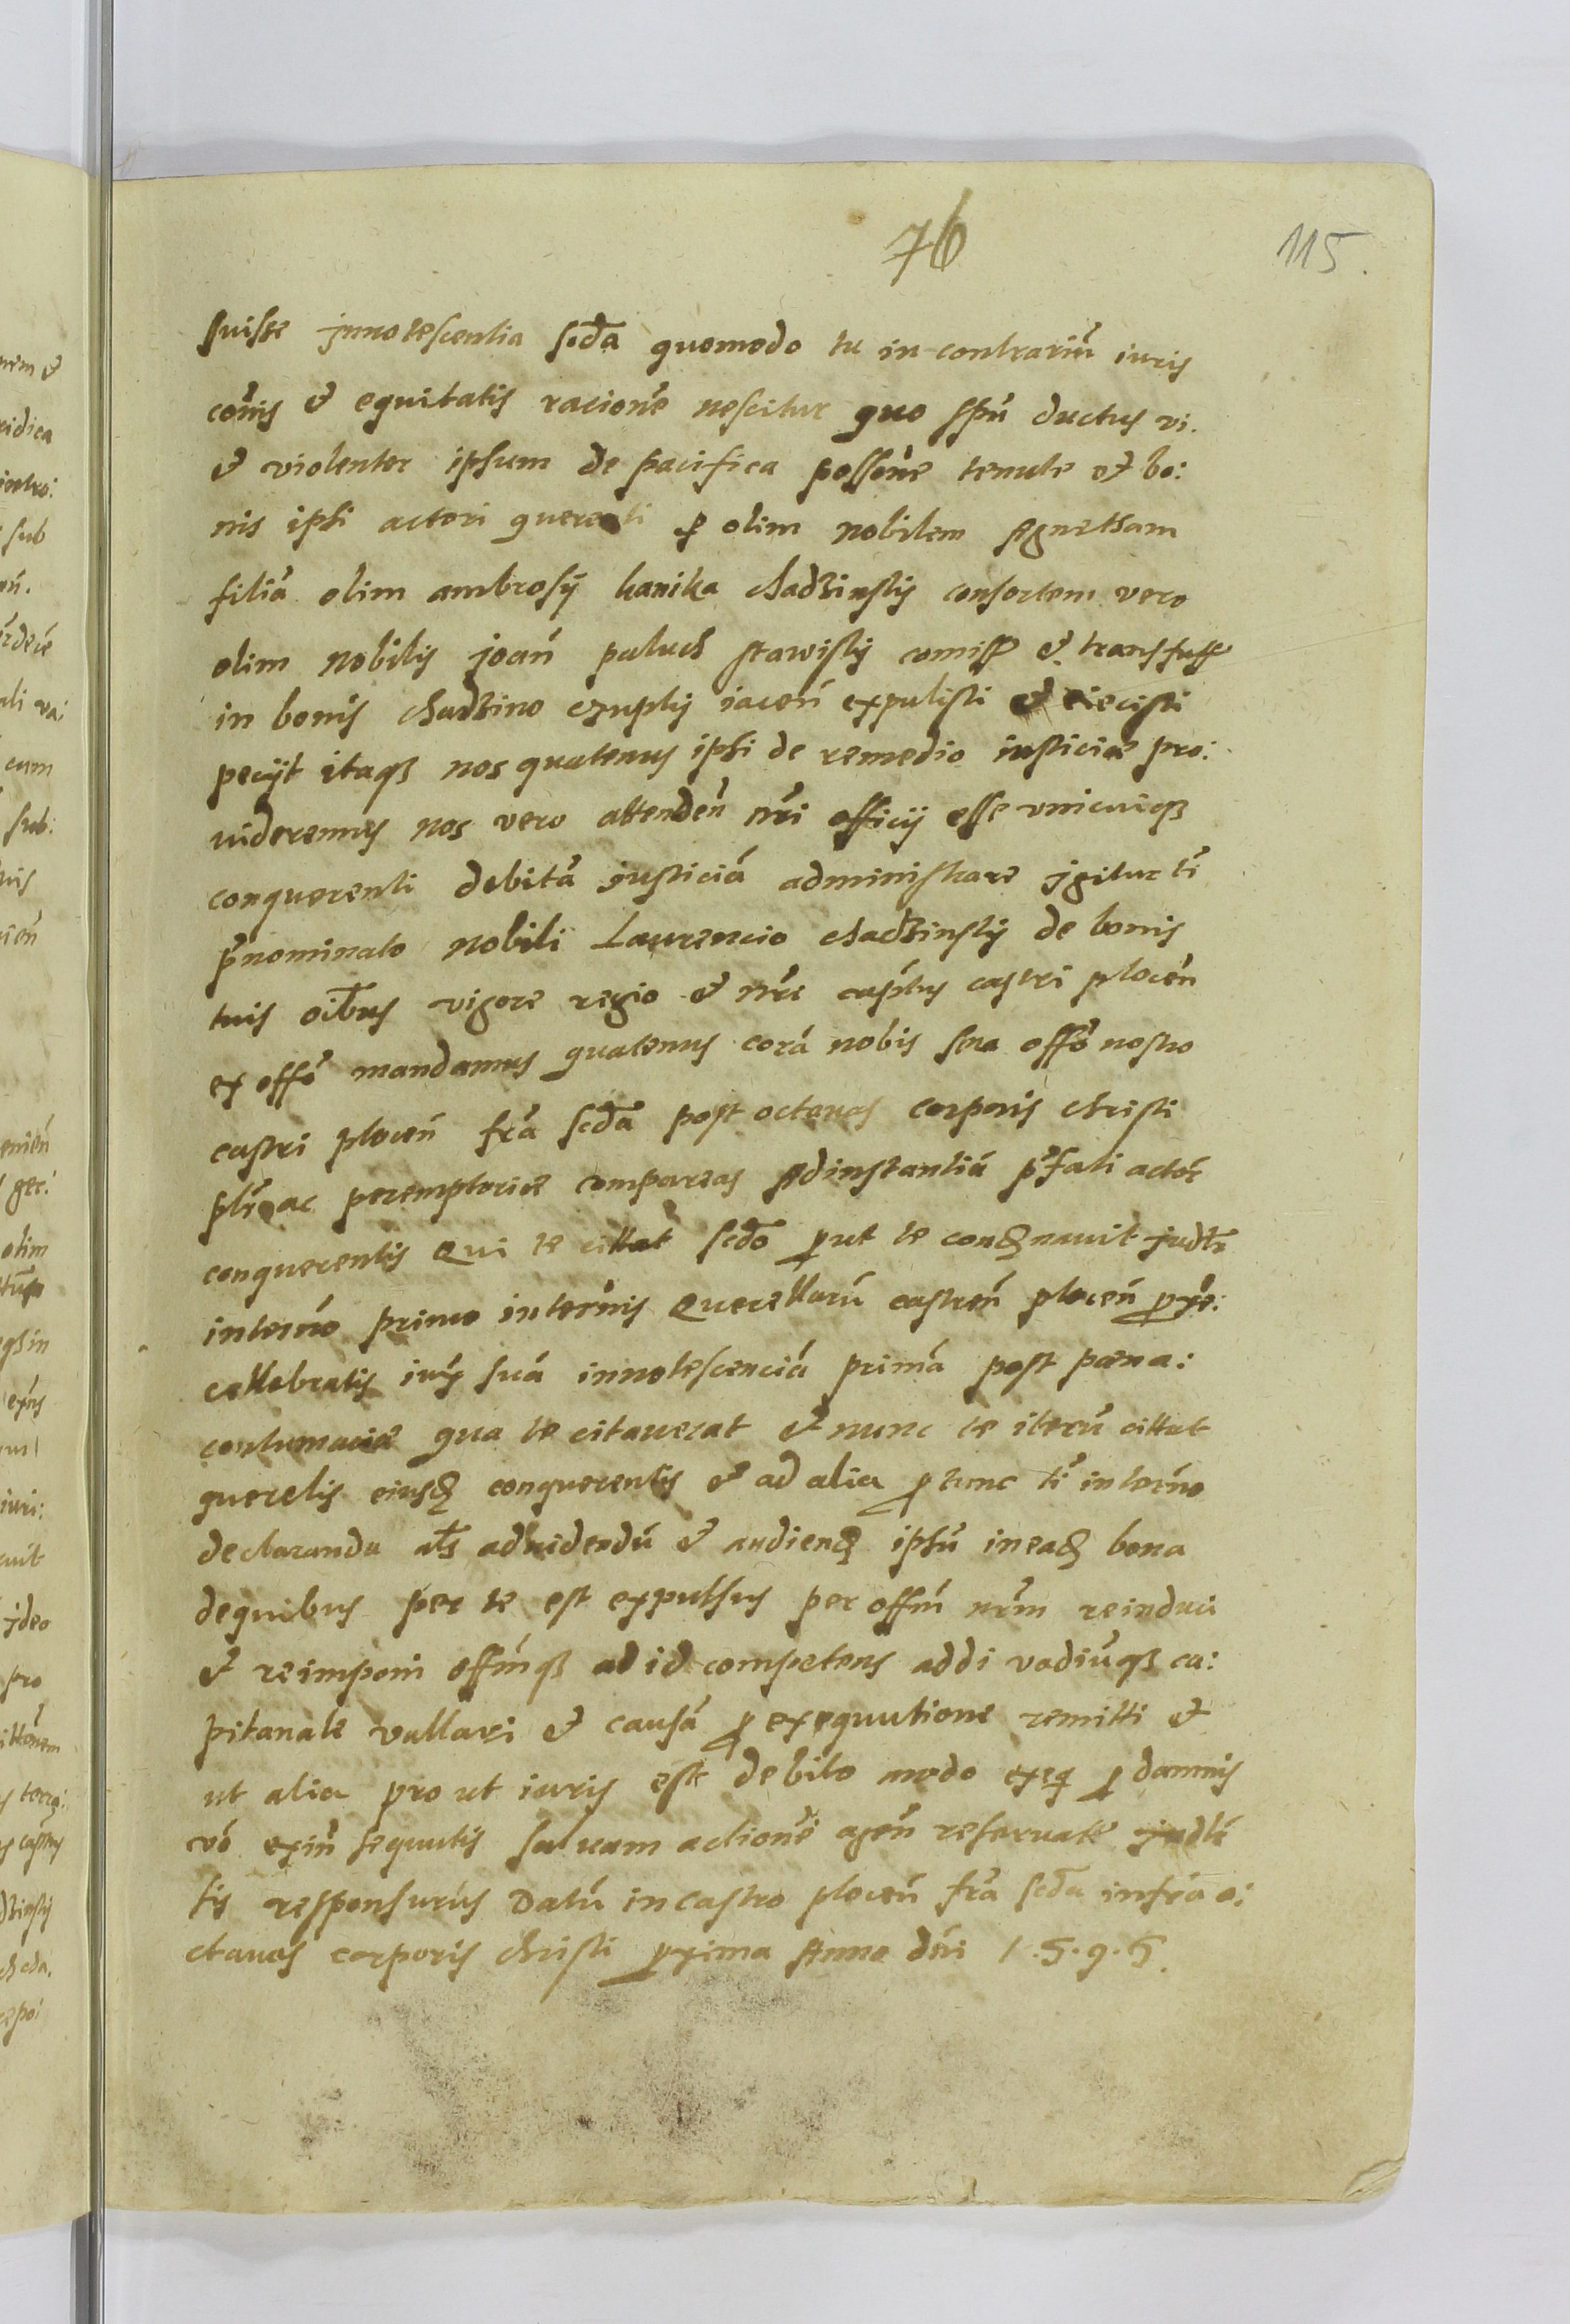 76
115.
fuisse jnnotescentia scda quomodo tu in contrariũ iuris
cõnis et equitatis racionẽ nescitur quo spũ ductus vi.
et violenter ipsum de pacifica possõne tenute et bo:
nis ipsi actori querenti per olim nobilem Agnetham
filiã olim ambrosij kanika chadzinskij consortem vero
olim nobilis joañ paluch stawiskij comiss et transfuss
in bonis chudzino iaceñ expulisti et eiecisti
pecijt itaqȝ nos quatenus ipsi de remedio iusticiæ pro:
uideremus nos vero attendeñ nr̃i officij esse vnicuiqȝ
conquerenti debitã justiciã administrare jgitur tĩ
p̃nominato nobili Laurencio chadzinskij de bonis
tuis oĩbus vigore regio et nr̃e captus castriploceñ
ex offõ mandamus quatenus corã nobis seu offõ nostro
castri ploceñ fr̃a scda post octauas corporis christi
plr̃ ac peremptoriæ compareas Ad instantiã p̃fati actoř
conquerentis Qui te cittat scdo prout te condẽnauit judlr̃
in terño primo in terñis Querellarũ castreñ ploceñ proxe:
cellebratis iux suã innotescenciã primã post pæna:
contumaciæ qua te citauerat et nunc te iterũ cittat
querelis eiusdẽ conquerentis et ad alia pro tunc tĩ in terño
declaranda als aduidendũ et audiend ipsũ in ead bona
de quibus per te est expulsus per offm̃ nr̃m reinduci
et reimponi offm̃qȝ ad id competens addi vadiũqȝ ca:
pitanale vallari et causã pro exequutione remitti et
ut alia pro ut iuris este debito modo exeq pro damnis
vo exiñ sequutis saluam actionẽ ageñ reseruate judlr̃
tis responsurus Datũ in castro ploceñ fr̃a scda infra o:
ctauas corporis christi proxima Anno dñi 1.5.9.5.